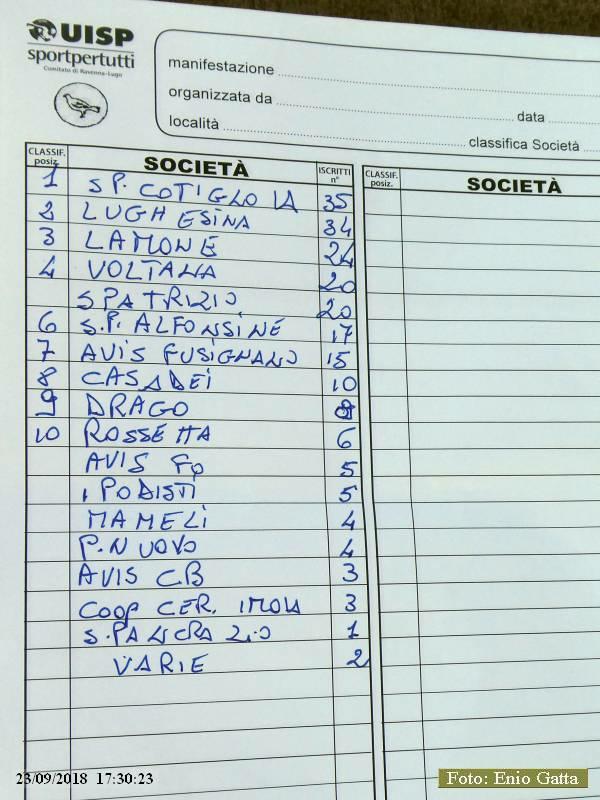 UISP
sportpertutti
Comitato di Ravenna-Lugo
manifestazione
organizzata da data
località classifica Società
CLASSIF. posiz. SOCIETÀ ISCRITTI n° CLASSIF. posiz. SOCIETÀ
1 SP. COTIGLO IA 35
2 LUGHESINA 34
3 LAMONE 24
4 VOLTANA 20
S PATRIZIO 20
6 S.P. ALFONSINE 17
7 AVIS FUSIGNANO 15
8 CASADEI 10
9 DRAGO 8
10 ROSSETTA 6
AVIS FO 5
I PODISTI 5
MAMELI 4
P. NUOVO 4
AVIS CB 3
COOP CER. IMOLA 3
S. PANCRAZIO 1
VARIE 2
23/09/2018 17:30:23
Foto: Enio Gatta